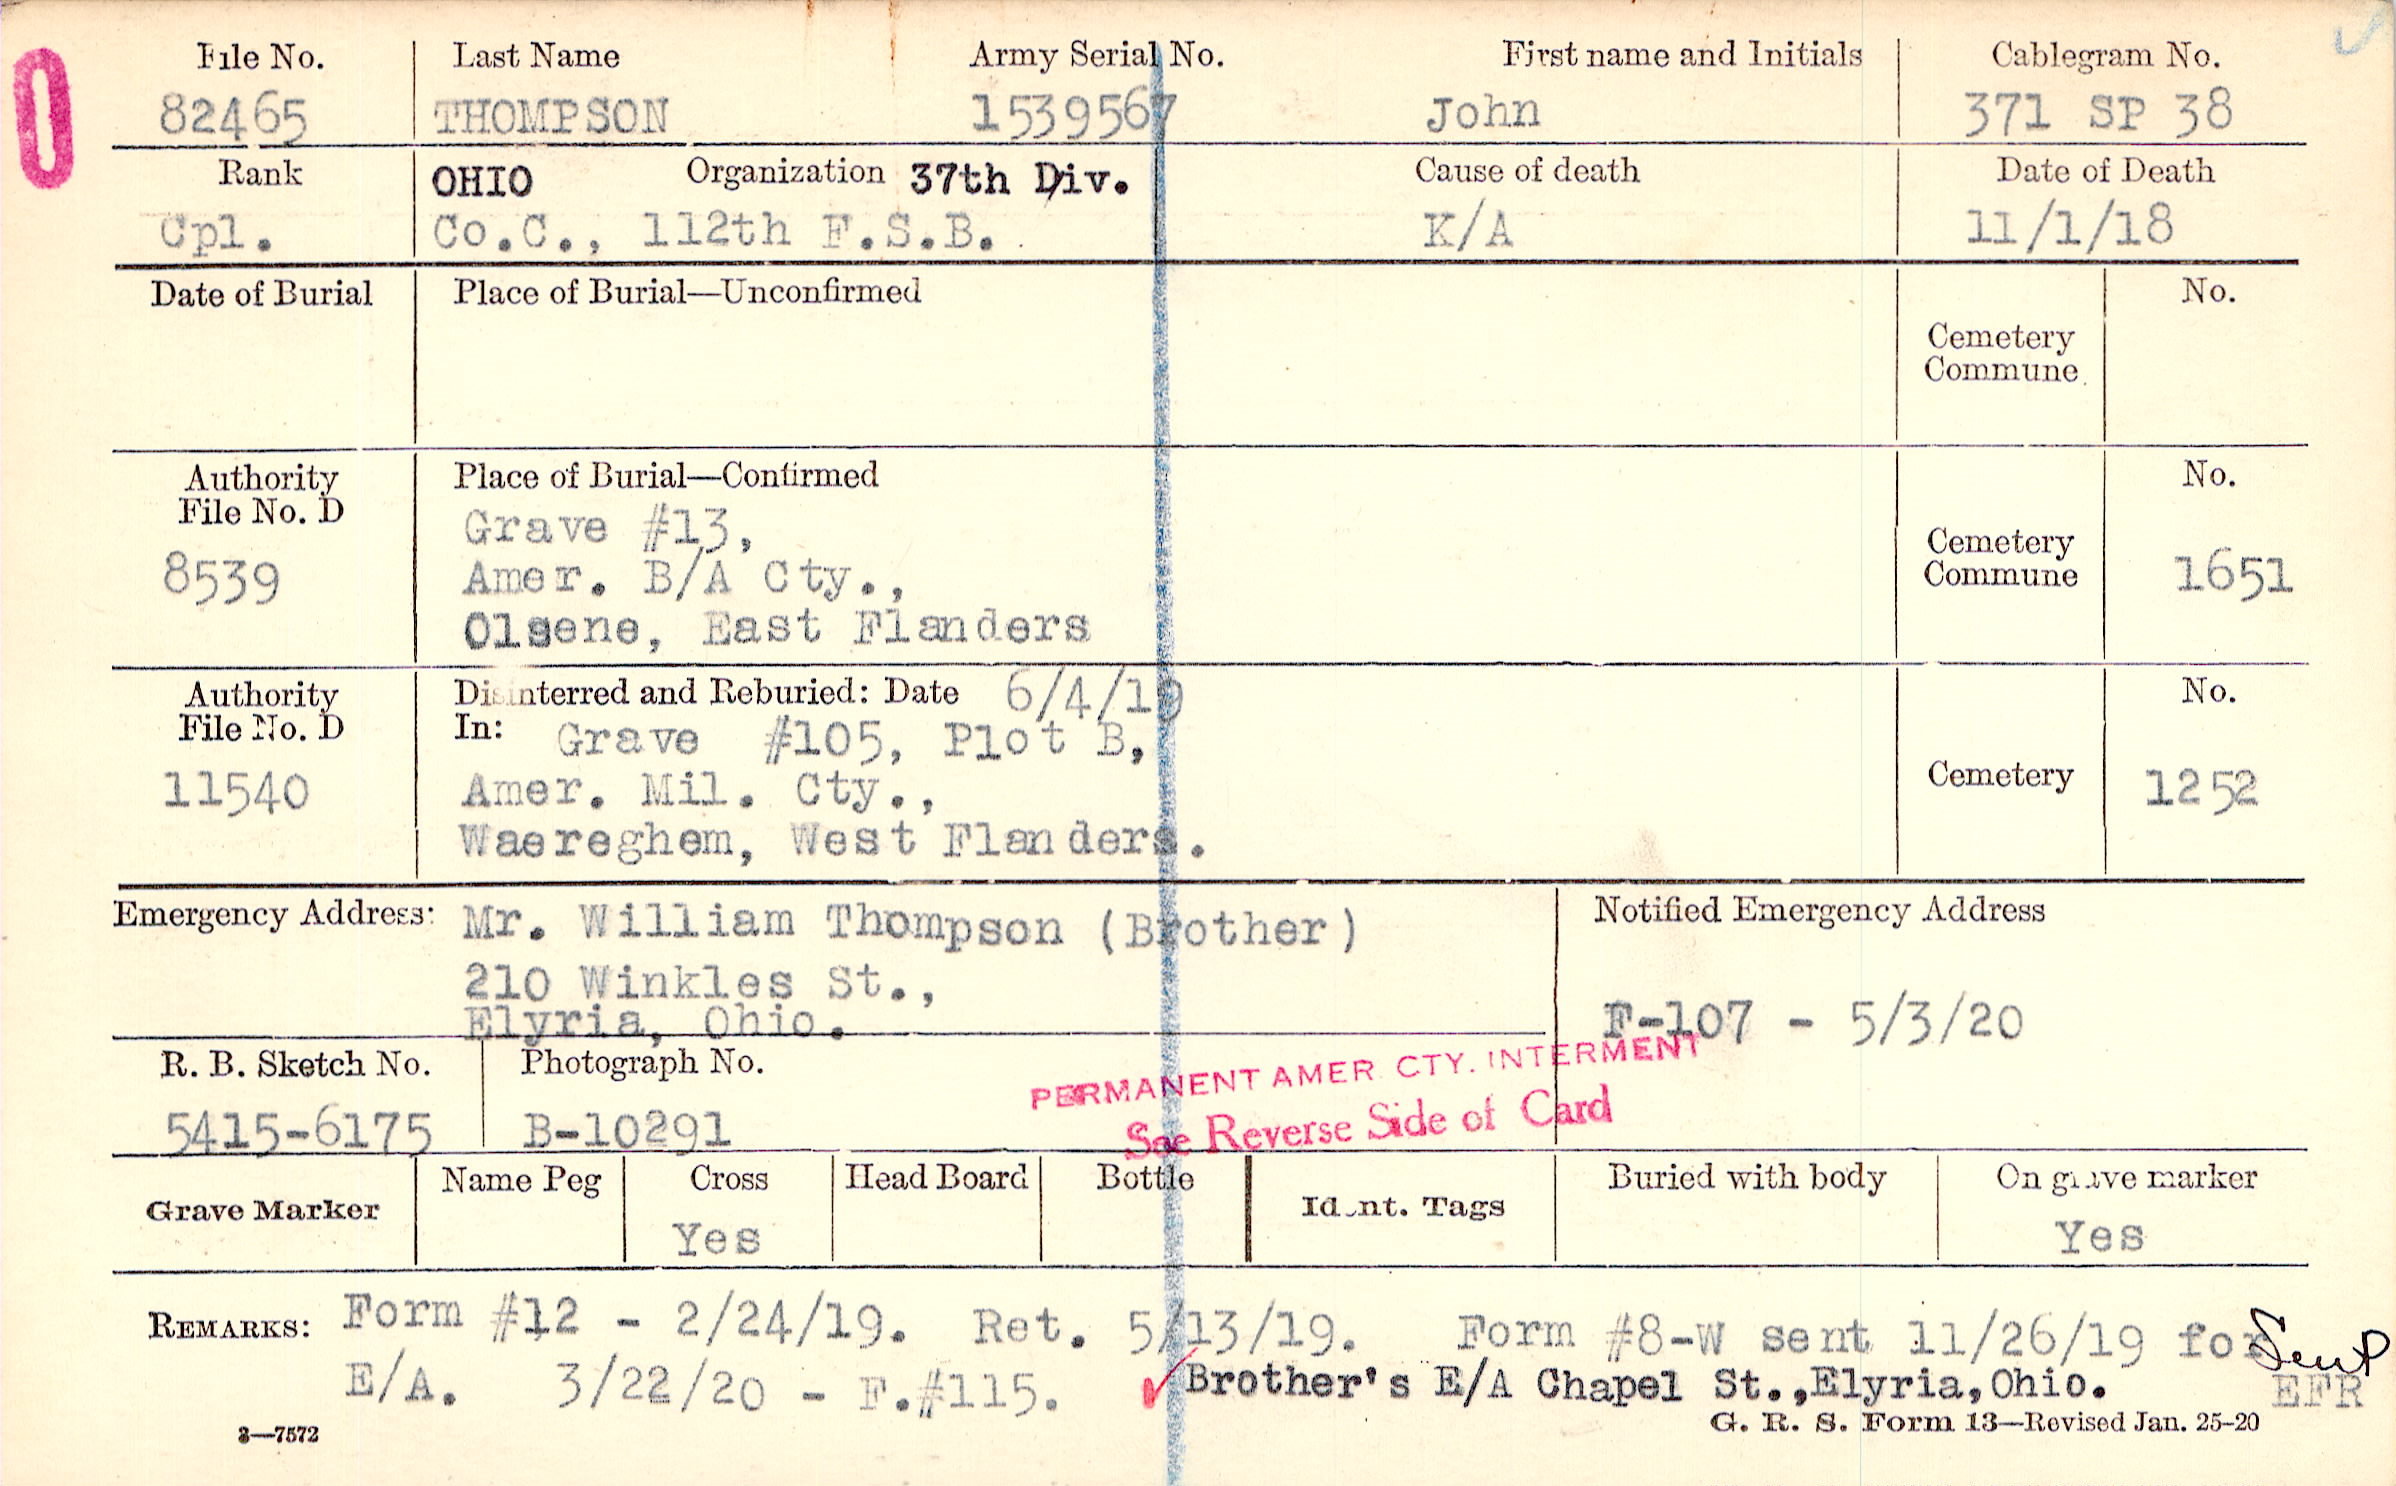 File No. Last Name Army Serial No. First name and Initials Cablegram No.
82465 THOMPSON 1539567 John 371 SP 38
Rank OHIO Organization 37th Div. Cause of death Date of Death
Cpl. Co.C., 112th F.S.B. K/A 11/1/18
Date of Burial Place of Burial—Unconfirmed No.
Cemetery
Commune
Authority Place of Burial—Confirmed No.
File No. D
Grave #13,
Cemetery
8539 Amer. B/A Cty., Commune 1651
Olsene, East Flanders
Authority Disinterred and Reburied: Date 6/4/19 No.
File No. D In: Grave #105, Plot B,
11540 Amer. Mil. Cty., Cemetery 1252
Waereghem, West Flanders.
Emergency Address: Mr. William Thompson (Brother) Notified Emergency Address
210 Winkles St.,
Elyria, Ohio. F-107 - 5/3/20
R. B. Sketch No. Photograph No. PERMANENT AMER CTY. INTERMENT
5415-6175 B-10291 See Reverse Side of Card
Grave Marker Name Peg Cross Head Board Bottle Ident. Tags Buried with body On grave marker
Yes Yes
REMARKS: Form #12 - 2/24/19. Ret. 5/13/19. Form #8-W sent 11/26/19 for
E/A. 3/22/20 - F.#115. Brother's E/A Chapel St.,Elyria,Ohio. EFR
3—7572 G. R. S. Form 13—Revised Jan. 25-20